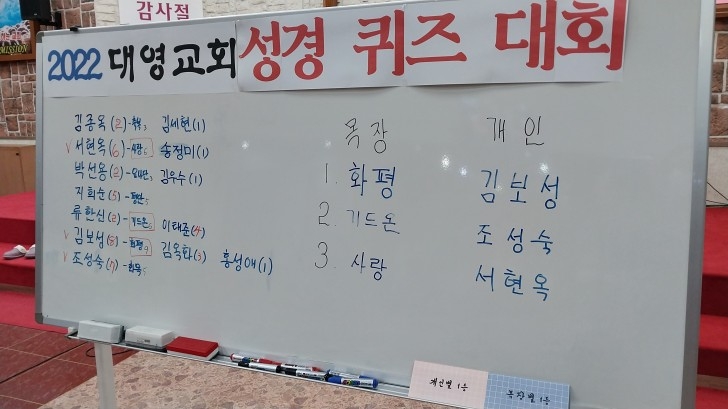 감사절
MISSION
2022 대영교회 성경 퀴즈 대회
김종옥(2)- 김세현(1)
서현옥(6)-사랑 송정미(1)
박선옹(2)- 김우수(1)
지희순(5)-평안
류한신(2)-기드온 이태준(4)
김보성(8)-화평 김옥화(3) 홍성애(1)
조성숙(7)-화목
목장 개인
1. 화평 김보성
2. 기드온 조성숙
3. 사랑 서현옥
개인별 1등
목장별 1등